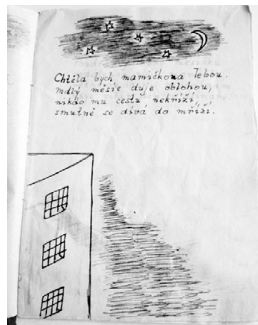 Chtěla bych maminkou
mdlý měsíc duje oblohou,
nikdo mu cestu nekříží,
smutně se dívá do mříží.